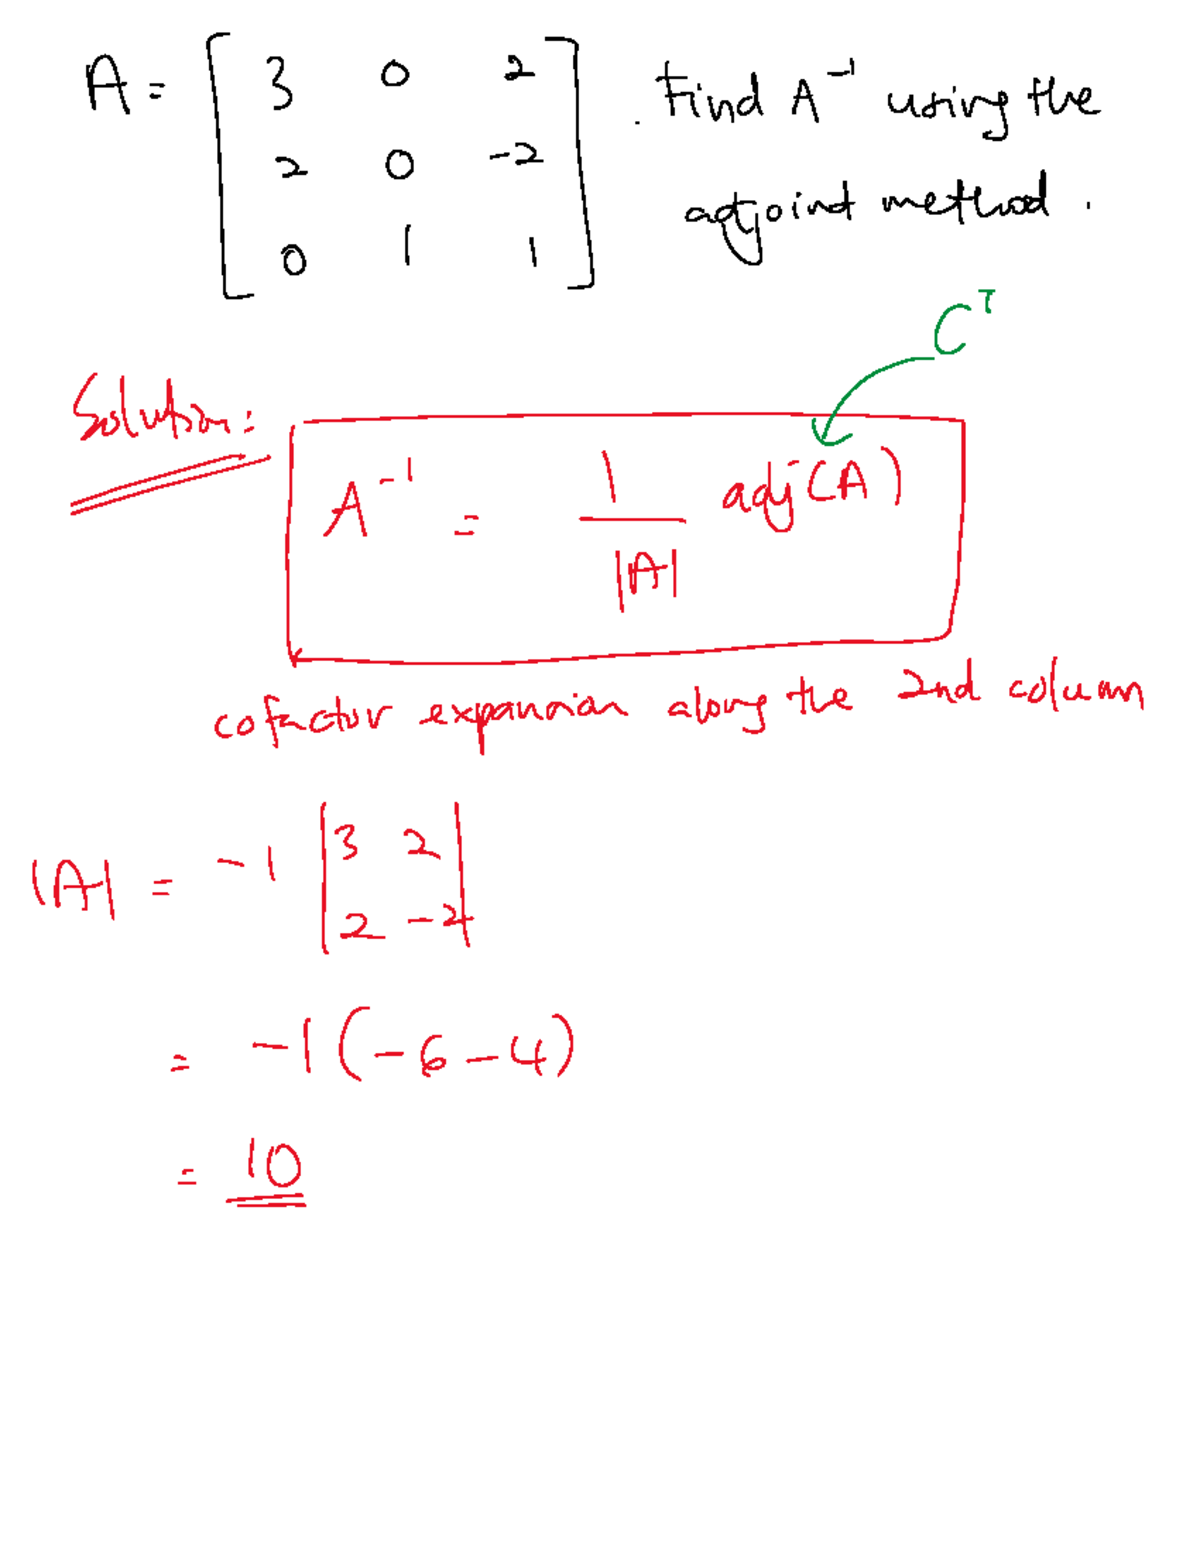 A = [ 3 0 2 . Find A⁻¹ using the
2 0 -2 adjoint method.
0 1 1 ]
Cᵀ
Solution:
A⁻¹ = 1/|A| adj(A)
cofactor expansion along the 2nd column
|A| = -1 |3 2
2 -2|
= -1(-6-4)
= 10